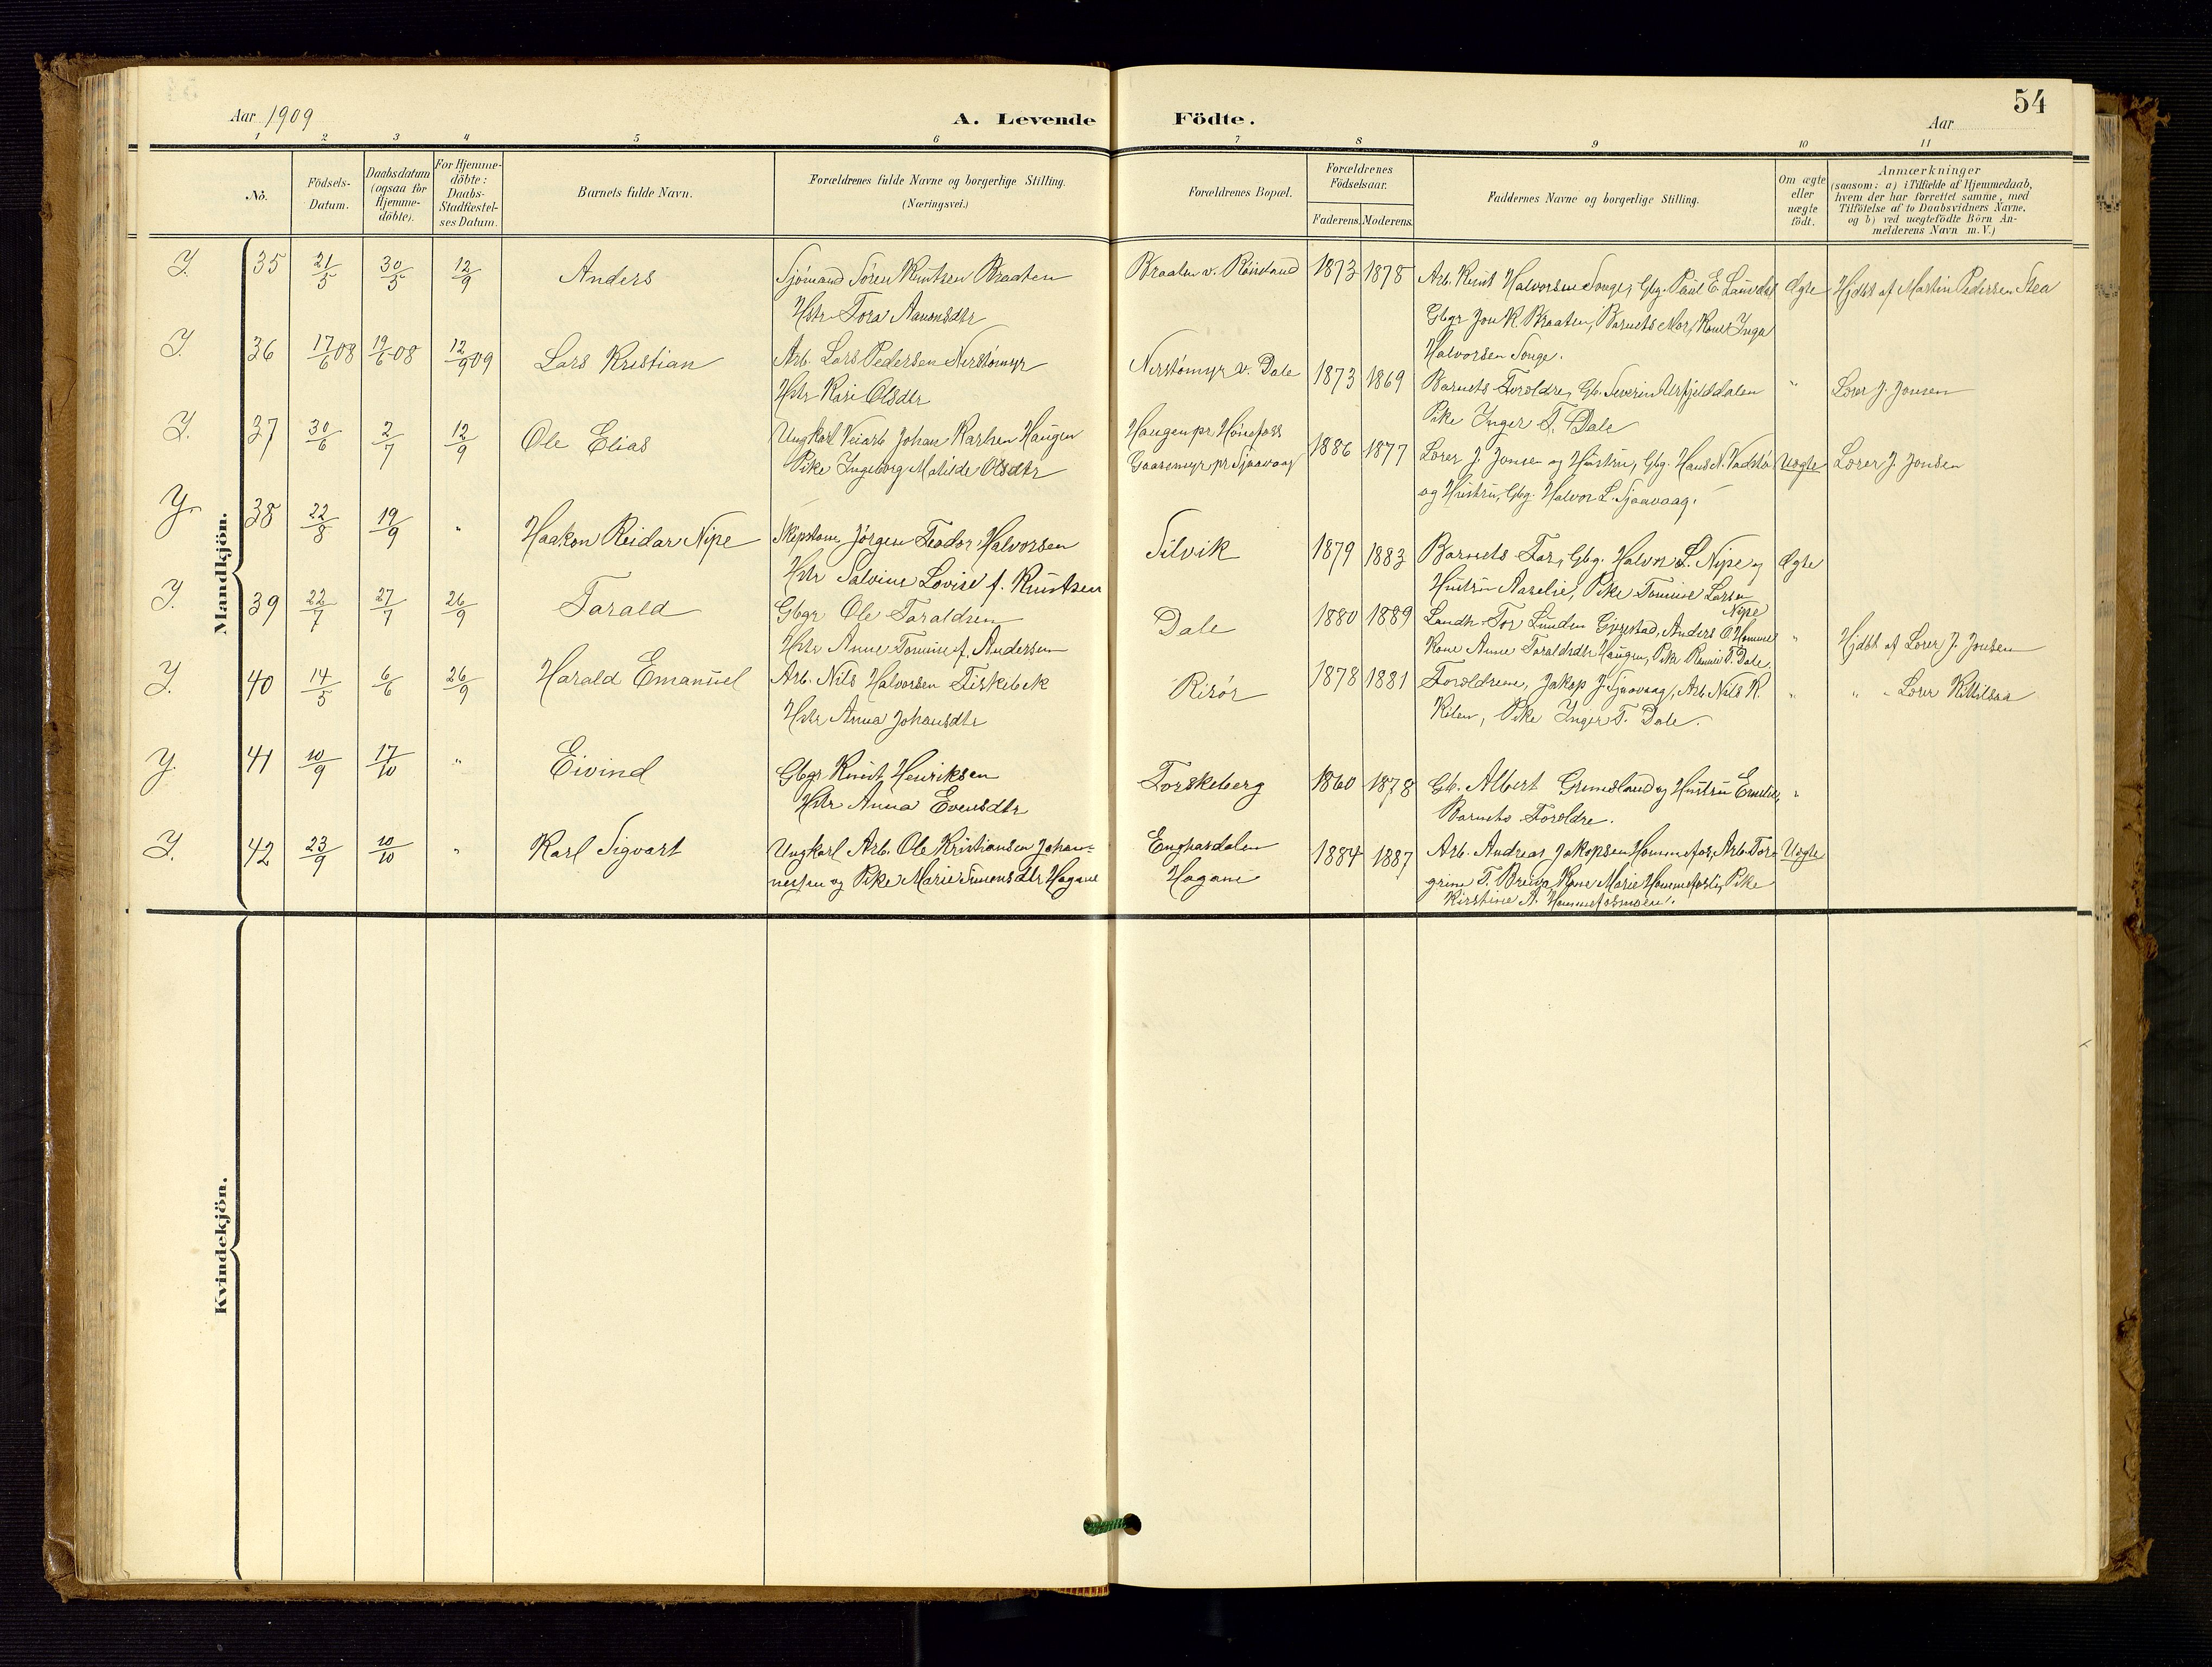 54
Aar 1909
A. Levende Födte.
Aar
1 2 3 4 5 6 7 8 9 10 11
No.
Födsels-Datum.
Daabsdatum (ogsaa for Hjemme-döbte).
For Hjemme-döbte: Daabs-Stadfæstel-ses Datum.
Barnets fulde Navn.
Forældrenes fulde Navne og borgerlige Stilling.
(Næringsvei.)
Forældrenes Bopæl.
Forældrenes Födselsaar.
Faderens. Moderens.
Faddernes Navne og borgerlige Stilling.
Om ægte eller uægte födt.
Anmærkninger
(saasom: a) i Tilfælde af Hjemmedaab,
hvem der har forrettet samme, med
Tilföielse af to Daabsvidners Navne,
og b) ved uægtefödte Börn An-
melderens Navn m. V.)
Mandkjön.
J. 35 21/5 30/5 12/9 Anders Sjömand Sören Knutsen Braaten Braaten v. 1873 1878 Arb. Knut Halvorsen Songe, Gbg. Paul E. Lauvdal Ægte Hjdbt af Martin Pedersen Stea
Hstr Tora Aanonsdtr Gbgr Jon K. Braaten, Barnets Mor, Kone Inga
Halvorsen Songe.
J. 36 17/6 08 19/6 08 12/9 09 Lars Kristian Arb. Lars Pedersen Nerstömyr Nerstömyr v. Dale 1873 1869 Barnets Foreldre, Gb. Severin " Lærer J. Jonsen
Hstr Kari Olsdtr Pike Inger T. Dale
J. 37 30/6 2/7 12/9 Ole Elias Ungkarl Veiarb Johan Karlsen Haugen Haugen pr Hönefoss 1886 1877 Lærer J. Jonsen og Hustru, Gbg. Hans N. Vadstö Uægte Lærer J. Jonsen
Pike Ingeborg Matilde Olsdtr Gaasemyr pr Sjaavaag og Hustru, Gbg. Halvor L. Sjaavaag.
J. 38 22/8 19/9 " Haakon Reidar Nipe Skipstöm Jörgen Teodor Halvorsen Silvik 1879 1883 Barnets Far, Gbg. Halvor L. Nipe og Ægte
Hstr Salvine Lovise f. Knutsen Hustru Aaselie, Pike Tomine Larsen Nipe
J. 39 22/7 27/7 26/9 Tarald Gbgr Ole Taraldsen Dale 1880 1889 Landh. Tor Lunden Gjerestad, Anders O. Homme " Hjdbt af Lærer J. Jonsen
Hstr Anne Tomine f. Andersen Kone Anne Taraldsdtr Haugen, Pike T. Dale.
J. 40 14/5 6/6 26/9 Harald Emanuel Arb. Nils Halvorsen Fiskebek Risör 1878 1881 Foreldrene, Jakop J. Sjaavaag, Arb. Nils K. " " - Lærer Kittilsaa
Hstr Anna Johansdtr Kilen, Pike Inger T. Dale.
J. 41 10/9 17/10 " Eivind Gbgr Knut Henriksen Torskeberg 1860 1878 Gb. Albert Grimsland og Hustru Emelie, "
Hstr Anna Evensdtr Barnets Foreldre.
J. 42 23/9 10/10 " Karl Sigvart Ungkarl Arb. Ole Kristiansen Johan- Enghasdalen 1884 1887 Arb. Andreas Jakopsen Hommefos, Arb. Tor- Uægte
nessen og Pike Marie Simensdtr Hagane Hagane grim T. Breiva, Kone Marie Hommefosli, Pike
Kirstine A. Hommefosmoen.
Kvindekjön.